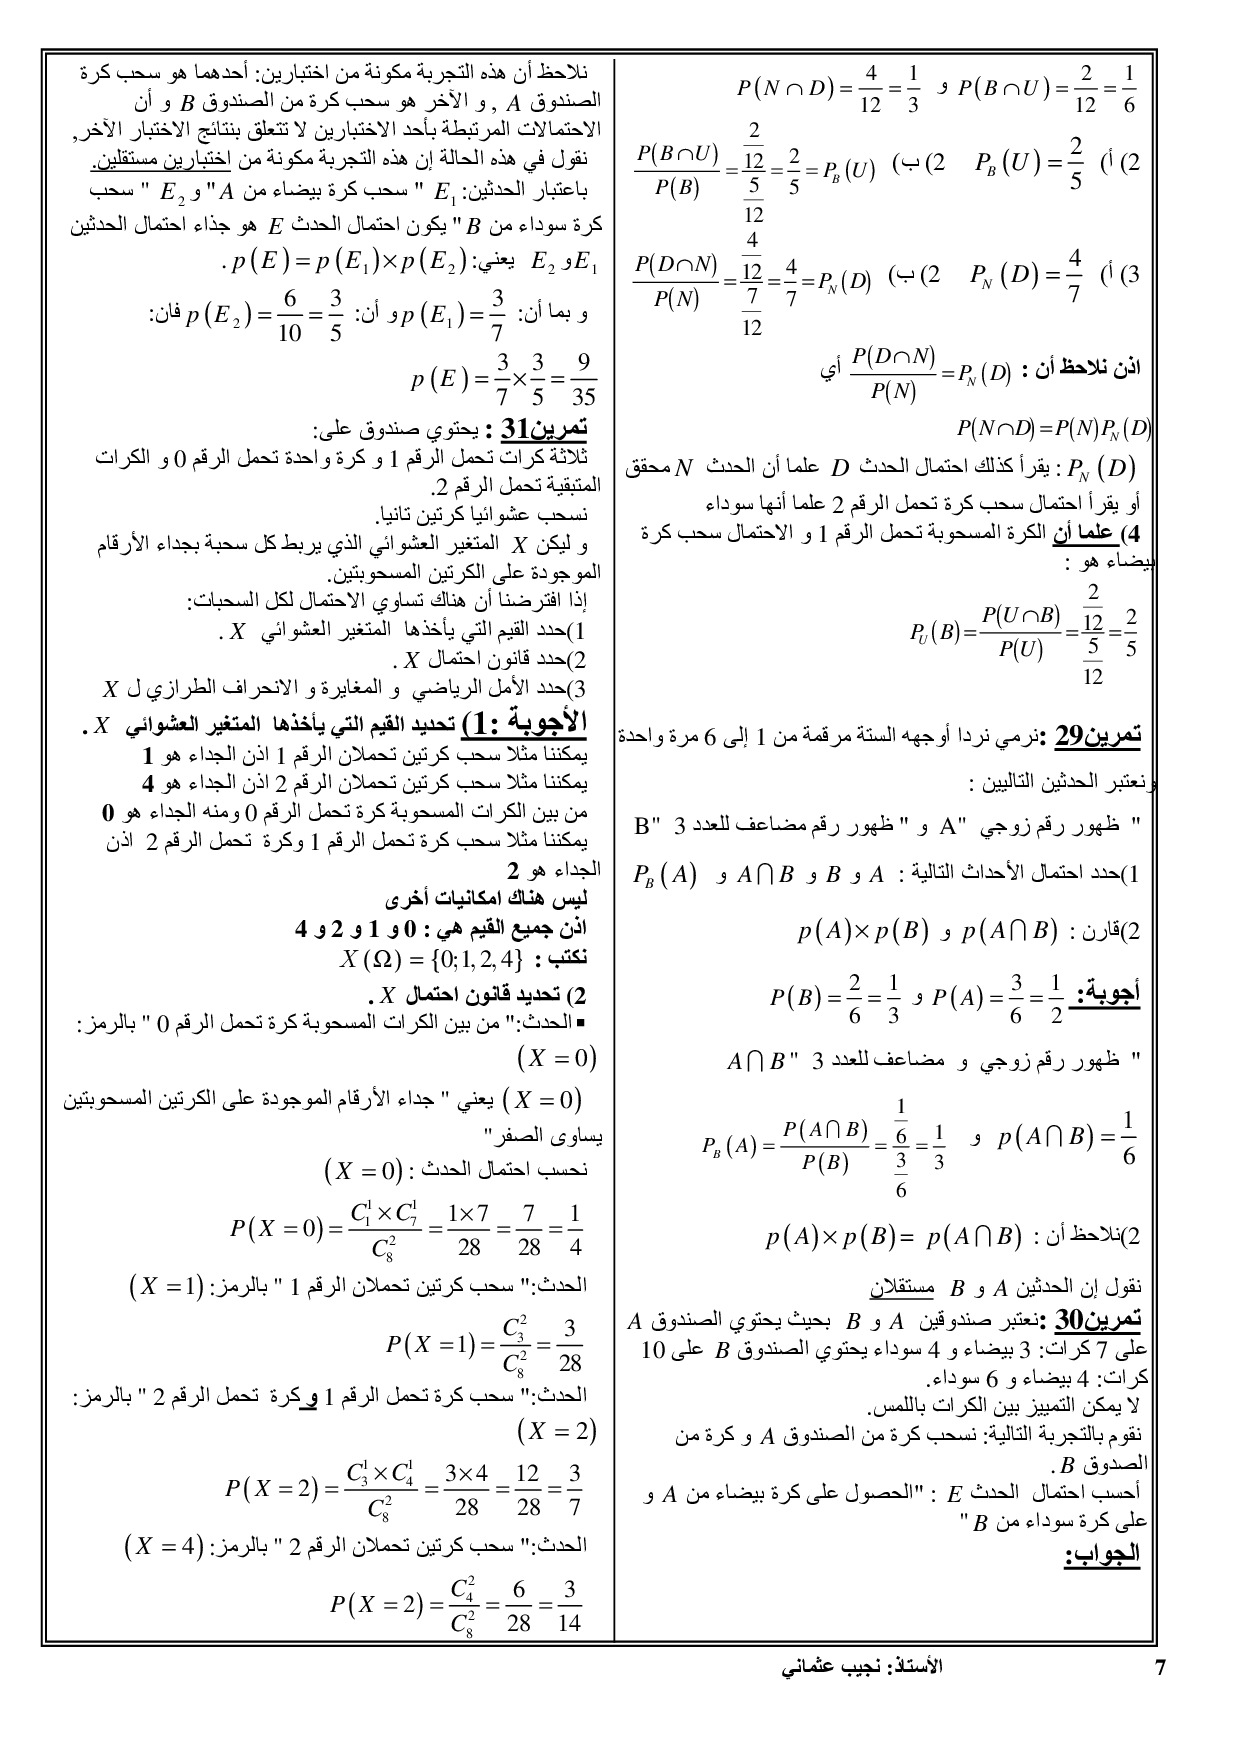 P(N ∩ D) = 4/12 = 1/3 و P(B ∩ U) = 2/12 = 1/6
2) أ) P_B(U) = 2/5 2) ب) P(B∩U)/P(B) = (2/12)/(5/12) = 2/5 = P_B(U)
3) أ) P_N(D) = 4/7 2) ب) P(D∩N)/P(N) = (4/12)/(7/12) = 4/7 = P_N(D)
اذن نلاحظ أن : P(D∩N)/P(N) = P_N(D) أي
P(N∩D) = P(N)P_N(D)
P_N(D) : يقرأ كذلك احتمال الحدث D علما أن الحدث N محقق
أو يقرأ احتمال سحب كرة تحمل الرقم 2 علما أنها سوداء
4) علما أن الكرة المسحوبة تحمل الرقم 1 و الاحتمال سحب كرة
بيضاء هو :
P_U(B) = P(U∩B)/P(U) = (2/12)/(5/12) = 2/5
تمرين29 :نرمي نردا أوجهه الستة مرقمة من 1 إلى 6 مرة واحدة
ونعتبر الحدثين التاليين :
" ظهور رقم زوجي "A و " ظهور رقم مضاعف للعدد 3 "B
1)حدد احتمال الأحداث التالية : A و B و A⋂B و P_B(A)
2)قارن : p(A⋂B) و p(A)×p(B)
أجوبة: P(A) = 3/6 = 1/2 و P(B) = 2/6 = 1/3
" ظهور رقم زوجي و مضاعف للعدد 3 "A⋂B
p(A⋂B) = 1/6 و P_B(A) = P(A⋂B)/P(B) = (1/6)/(3/6) = 1/3
2)نلاحظ أن : p(A)×p(B) = p(A⋂B)
نقول إن الحدثين A و B مستقلان
تمرين30 :نعتبر صندوقين A و B بحيث يحتوي الصندوق A
على 7 كرات: 3 بيضاء و 4 سوداء يحتوي الصندوق B على 10
كرات: 4 بيضاء و 6 سوداء.
لا يمكن التمييز بين الكرات باللمس.
نقوم بالتجربة التالية: نسحب كرة من الصندوق A و كرة من
الصدوق B.
أحسب احتمال الحدث E : "الحصول على كرة بيضاء من A و
على كرة سوداء من B"
الجواب:
نلاحظ أن هذه التجربة مكونة من اختبارين: أحدهما هو سحب كرة
الصندوق A , و الآخر هو سحب كرة من الصندوق B و أن
الاحتمالات المرتبطة بأحد الاختبارين لا تتعلق بنتائج الاختبار الآخر,
نقول في هذه الحالة إن هذه التجربة مكونة من اختبارين مستقلين.
باعتبار الحدثين: E₁ " سحب كرة بيضاء من A" و E₂ " سحب
كرة سوداء من B" يكون احتمال الحدث E هو جذاء احتمال الحدثين
E₁ و E₂ يعني: p(E) = p(E₁)×p(E₂) .
و بما أن: p(E₁) = 3/7 و أن: p(E₂) = 6/10 = 3/5 فان:
p(E) = 3/7 × 3/5 = 9/35
تمرين31 : يحتوي صندوق على:
ثلاثة كرات تحمل الرقم 1 و كرة واحدة تحمل الرقم 0 و الكرات
المتبقية تحمل الرقم 2.
نسحب عشوائيا كرتين تانيا.
و ليكن X المتغير العشوائي الذي يربط كل سحبة بجداء الأرقام
الموجودة على الكرتين المسحوبتين.
إذا افترضنا أن هناك تساوي الاحتمال لكل السحبات:
1)حدد القيم التي يأخذها المتغير العشوائي X .
2)حدد قانون احتمال X .
3)حدد الأمل الرياضي و المغايرة و الانحراف الطرازي ل X
الأجوبة :1) تحديد القيم التي يأخذها المتغير العشوائي X .
يمكننا مثلا سحب كرتين تحملان الرقم 1 اذن الجداء هو 1
يمكننا مثلا سحب كرتين تحملان الرقم 2 اذن الجداء هو 4
من بين الكرات المسحوبة كرة تحمل الرقم 0 ومنه الجداء هو 0
يمكننا مثلا سحب كرة تحمل الرقم 1 وكرة تحمل الرقم 2 اذن
الجداء هو 2
ليس هناك امكانيات أخرى
اذن جميع القيم هي : 0 و 1 و 2 و 4
نكتب : X(Ω) = {0;1,2,4}
2) تحديد قانون احتمال X .
▪ الحدث:" من بين الكرات المسحوبة كرة تحمل الرقم 0 " بالرمز:
(X = 0)
(X = 0) يعني " جداء الأرقام الموجودة على الكرتين المسحوبتين
يساوى الصفر"
نحسب احتمال الحدث : (X = 0)
P(X = 0) = (C₁¹×C₇¹)/C₈² = (1×7)/28 = 7/28 = 1/4
الحدث:" سحب كرتين تحملان الرقم 1 " بالرمز: (X = 1)
P(X = 1) = C₃²/C₈² = 3/28
الحدث:" سحب كرة تحمل الرقم 1 و كرة تحمل الرقم 2 " بالرمز:
(X = 2)
P(X = 2) = (C₃¹×C₄¹)/C₈² = (3×4)/28 = 12/28 = 3/7
الحدث:" سحب كرتين تحملان الرقم 2 " بالرمز: (X = 4)
P(X = 2) = C₄²/C₈² = 6/28 = 3/14
الأستاذ: نجيب عثماني
7